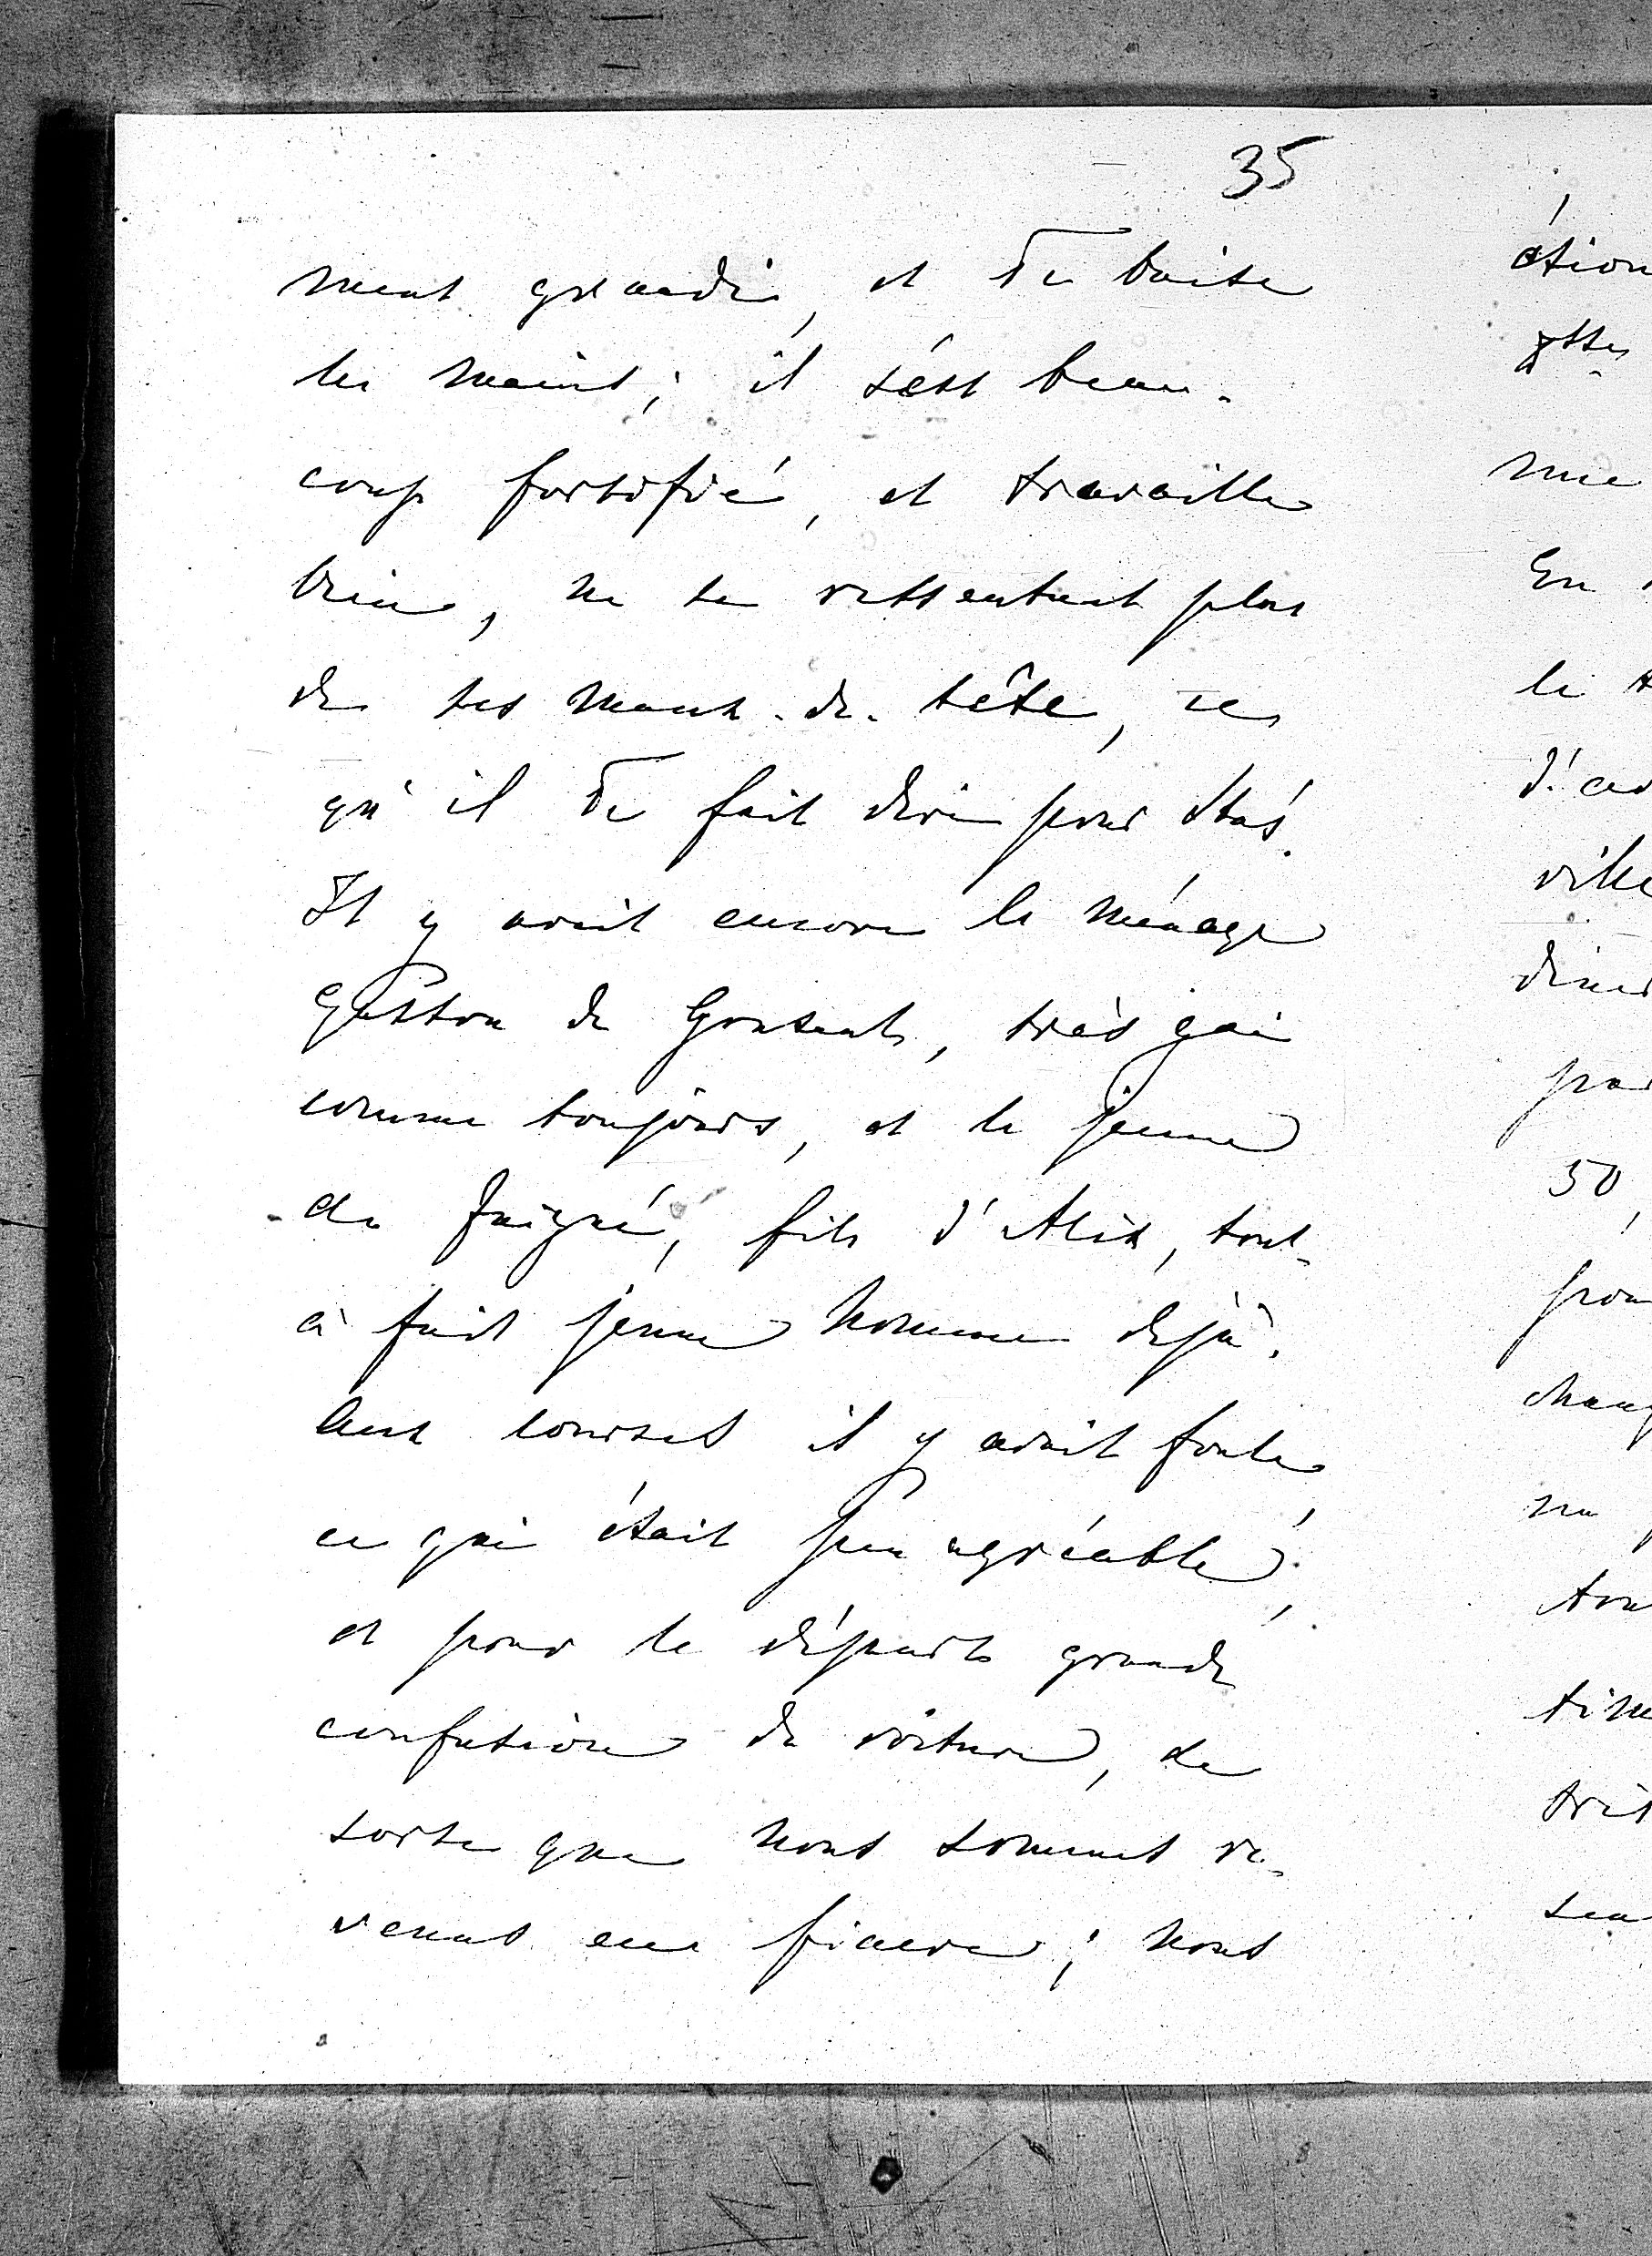 35
ment grandi, et Te baise
les mains; il s'est beau-
coup fortifié, et travaille
bien, ne se ressentant plus
de ses maux-de-tête, ce
qu'il Te fait dire pour Stas.
Il y avait encore le ménage
Gaston de Gontaut, très gai
comme toujours, et le jeune
de Juigné, fils d'Alix, tout-
à fait jeune homme déjà.
Aux courses il y avait foule
ce qui était peu agréable;
et pour le départ grande
confusion de voiture, de
sorte que nous sommes re-
venus en fiacre; nous
étion
mie
En
le
d'au
dîner
50,
chang